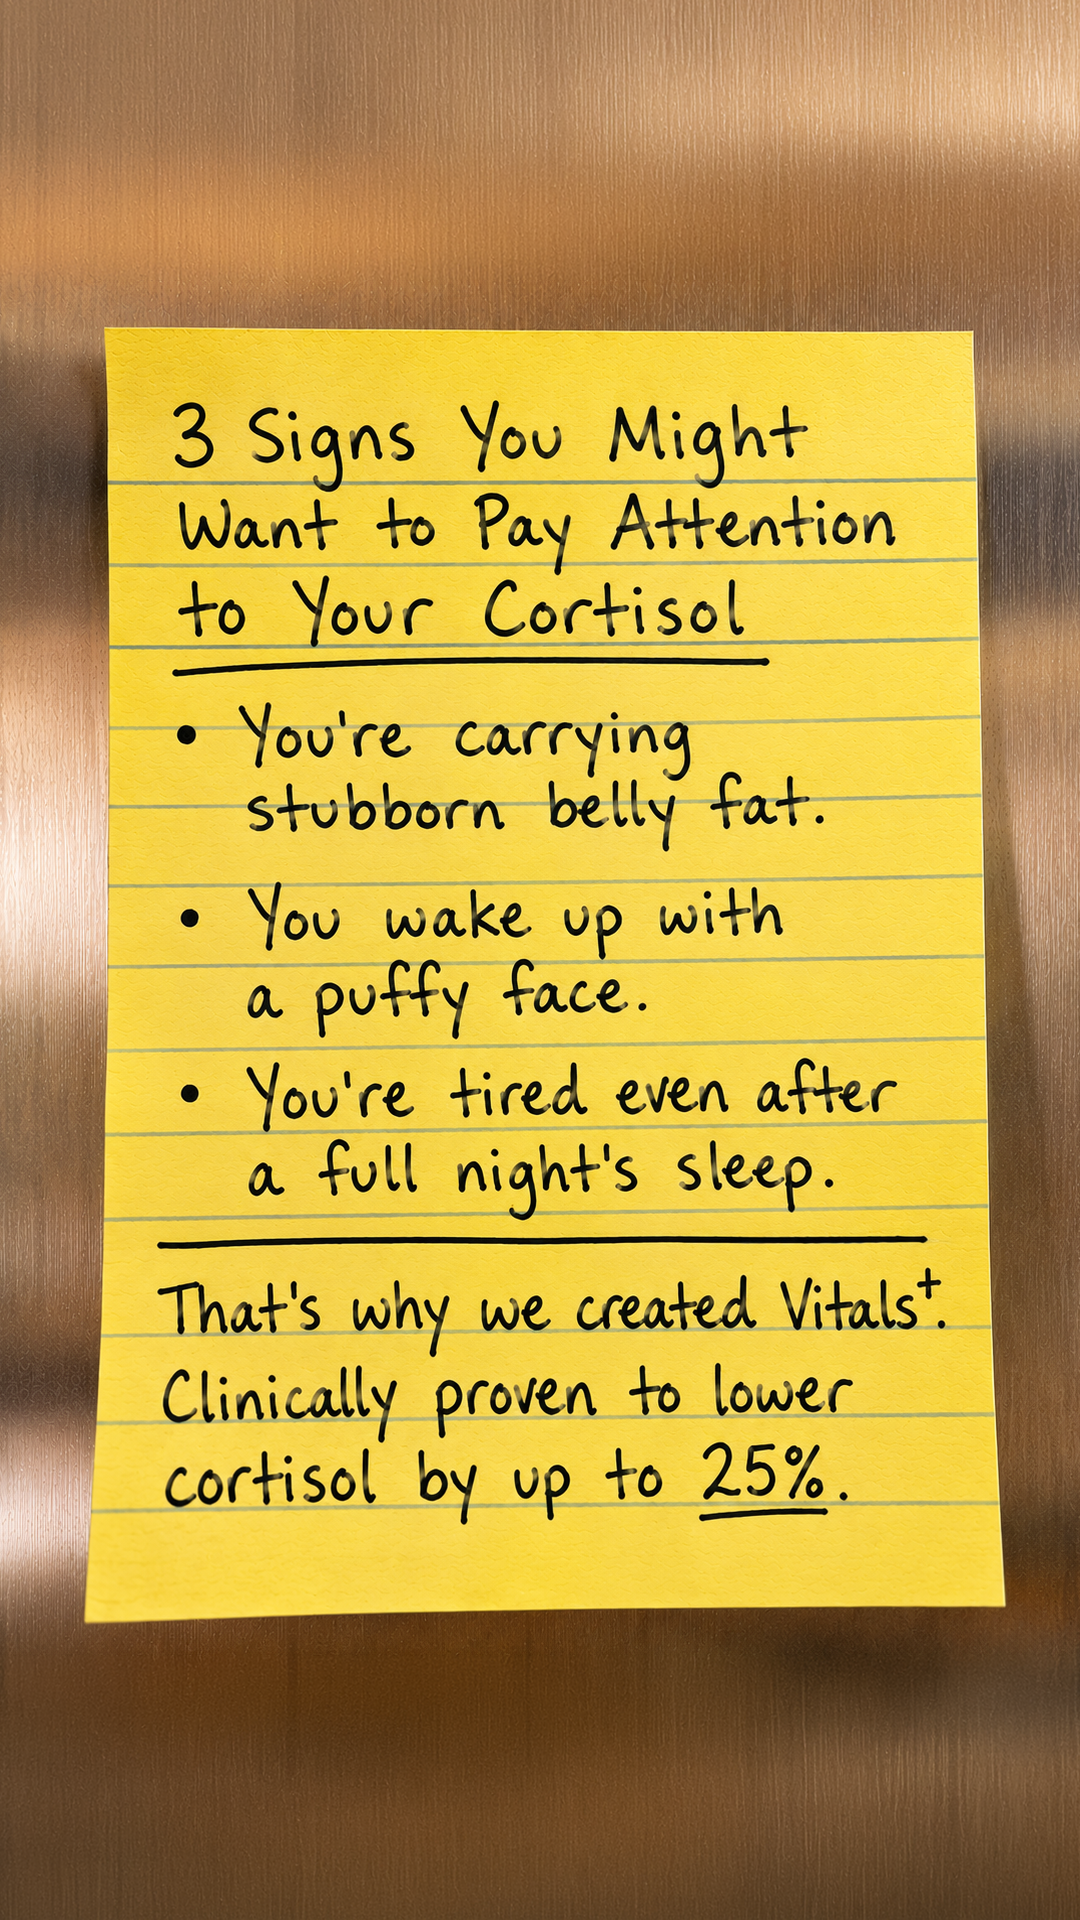 3 Signs You Might
Want to Pay Attention
to Your Cortisol
• You're carrying
stubborn belly fat.
• You wake up with
a puffy face.
• You're tired even after
a full night's sleep.
That's why we created Vitals⁺.
Clinically proven to lower
cortisol by up to 25%.